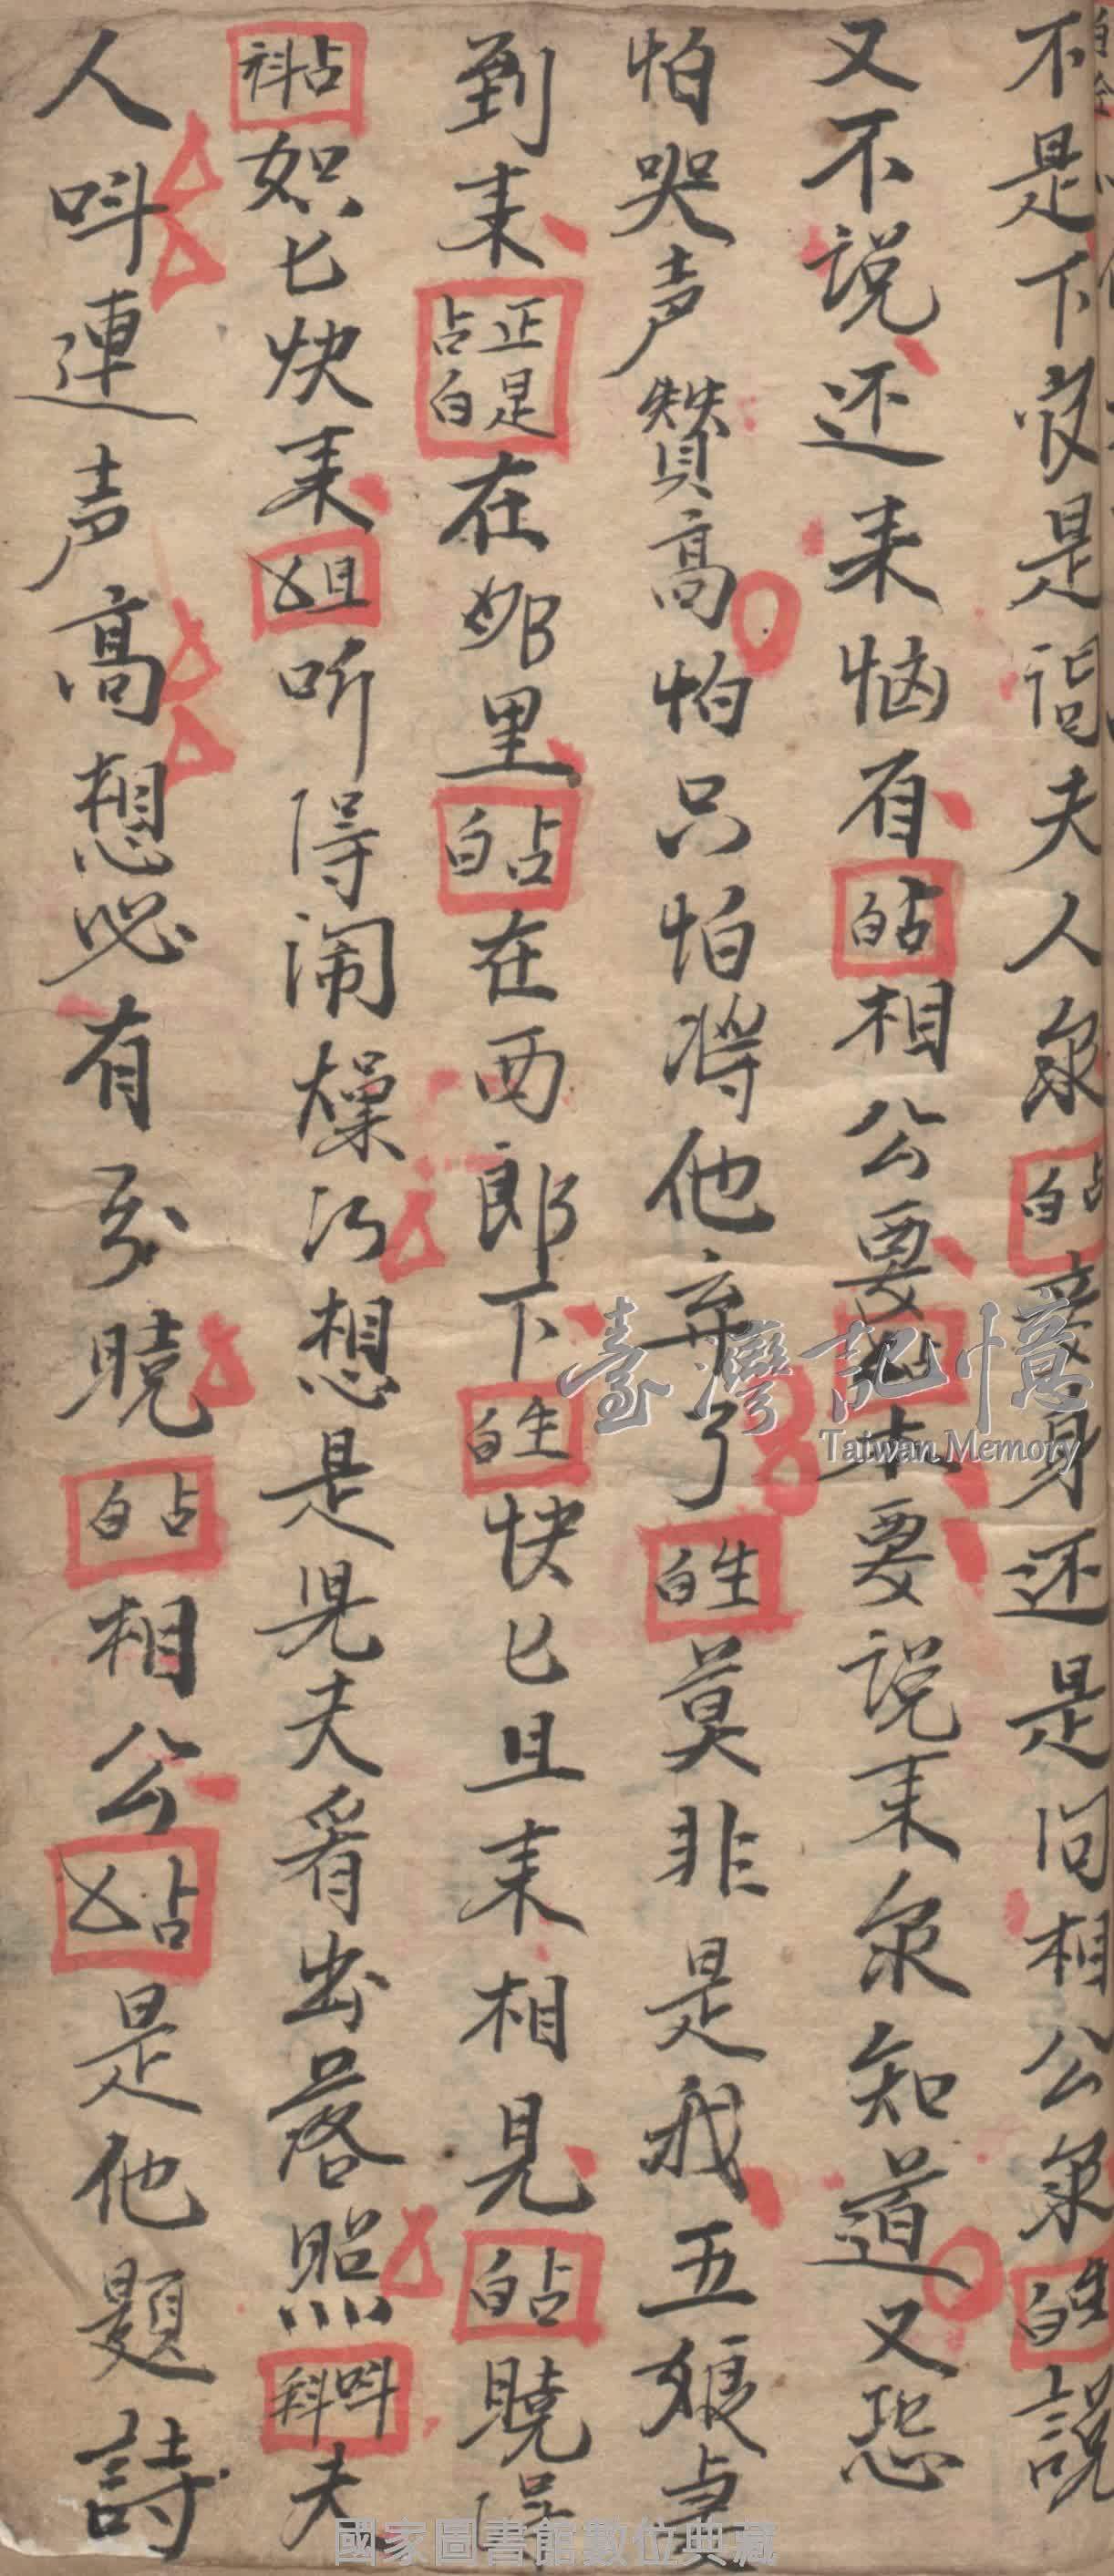 不是下官是詔夫人來占白妾身还是问相公來生白說
又不說还来恼有占白相公要来要說来泉知道又恐
怕哭声賛高怕只怕将他弃了生白莫非是我五娘妻
到来正是占白在那里占白在西郎下生白快匕且来相見占白暁得
占科恕匕快来姐听得闹燥沏想是児夫看出落照叫科夫
人叫連声高想必有分曉占白相公占是他題詩
臺灣記憶
Taiwan Memory
國家圖書館數位典藏